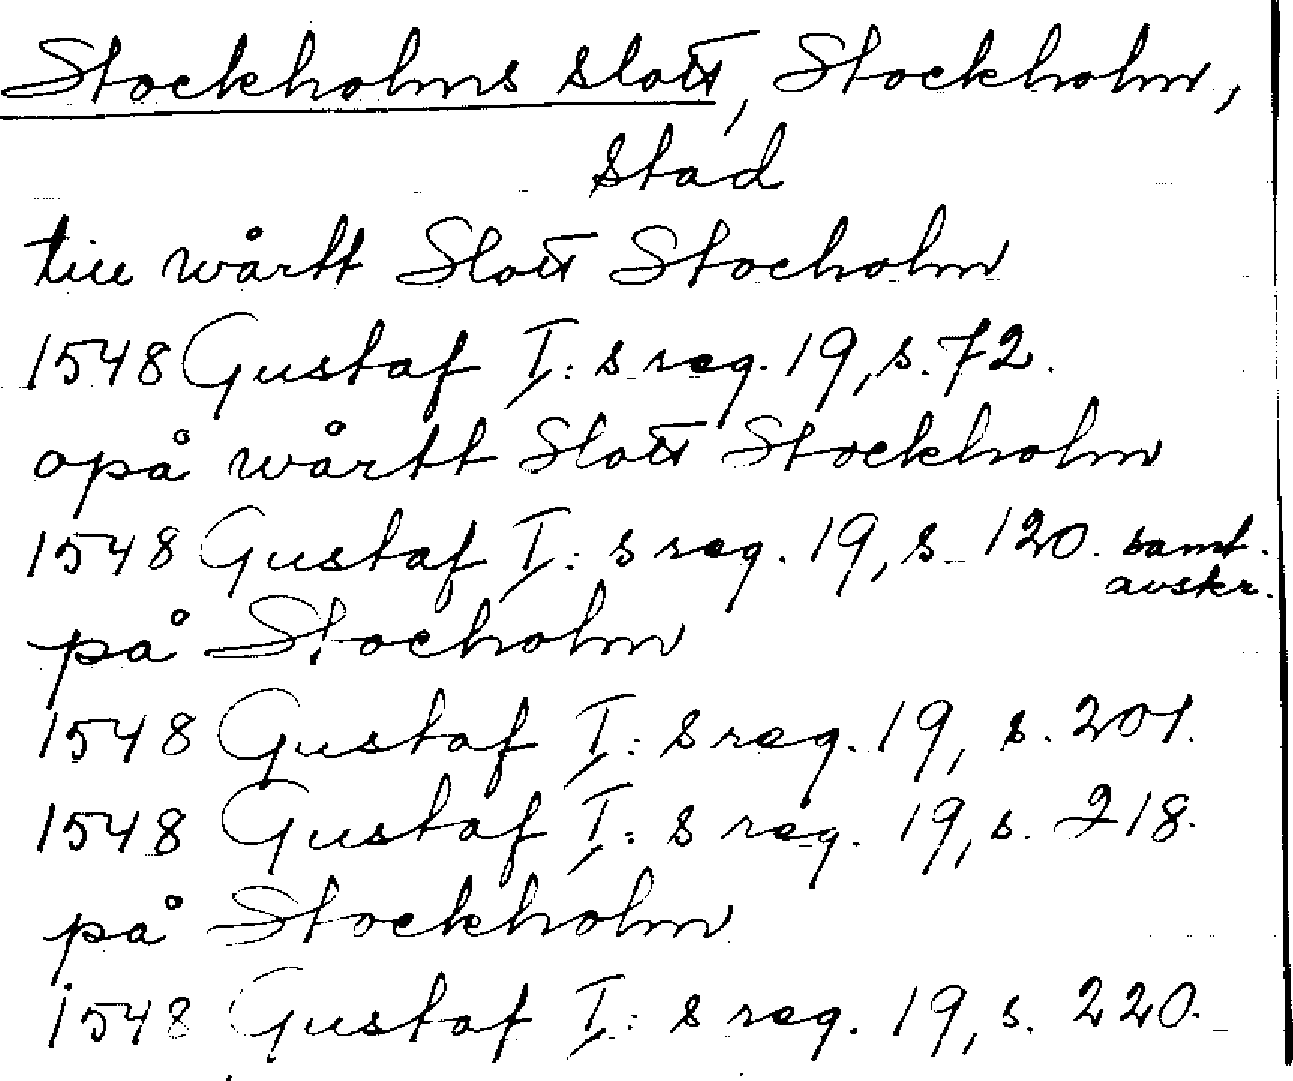 Stockholms slott, Stockholm,
stad
till wårtt Slott Stocholm
1548 Gustaf I:s reg. 19, s. 72.
opå wårtt Slott Stockholm
1548 Gustaf I:s reg. 19, s. 120. samt.
avskr.
på Stocholm
1548 Gustaf I:s reg. 19, s. 201.
1548 Gustaf I:s reg. 19, s. 218.
på Stockholm
1548 Gustaf I:s reg. 19, s. 220.